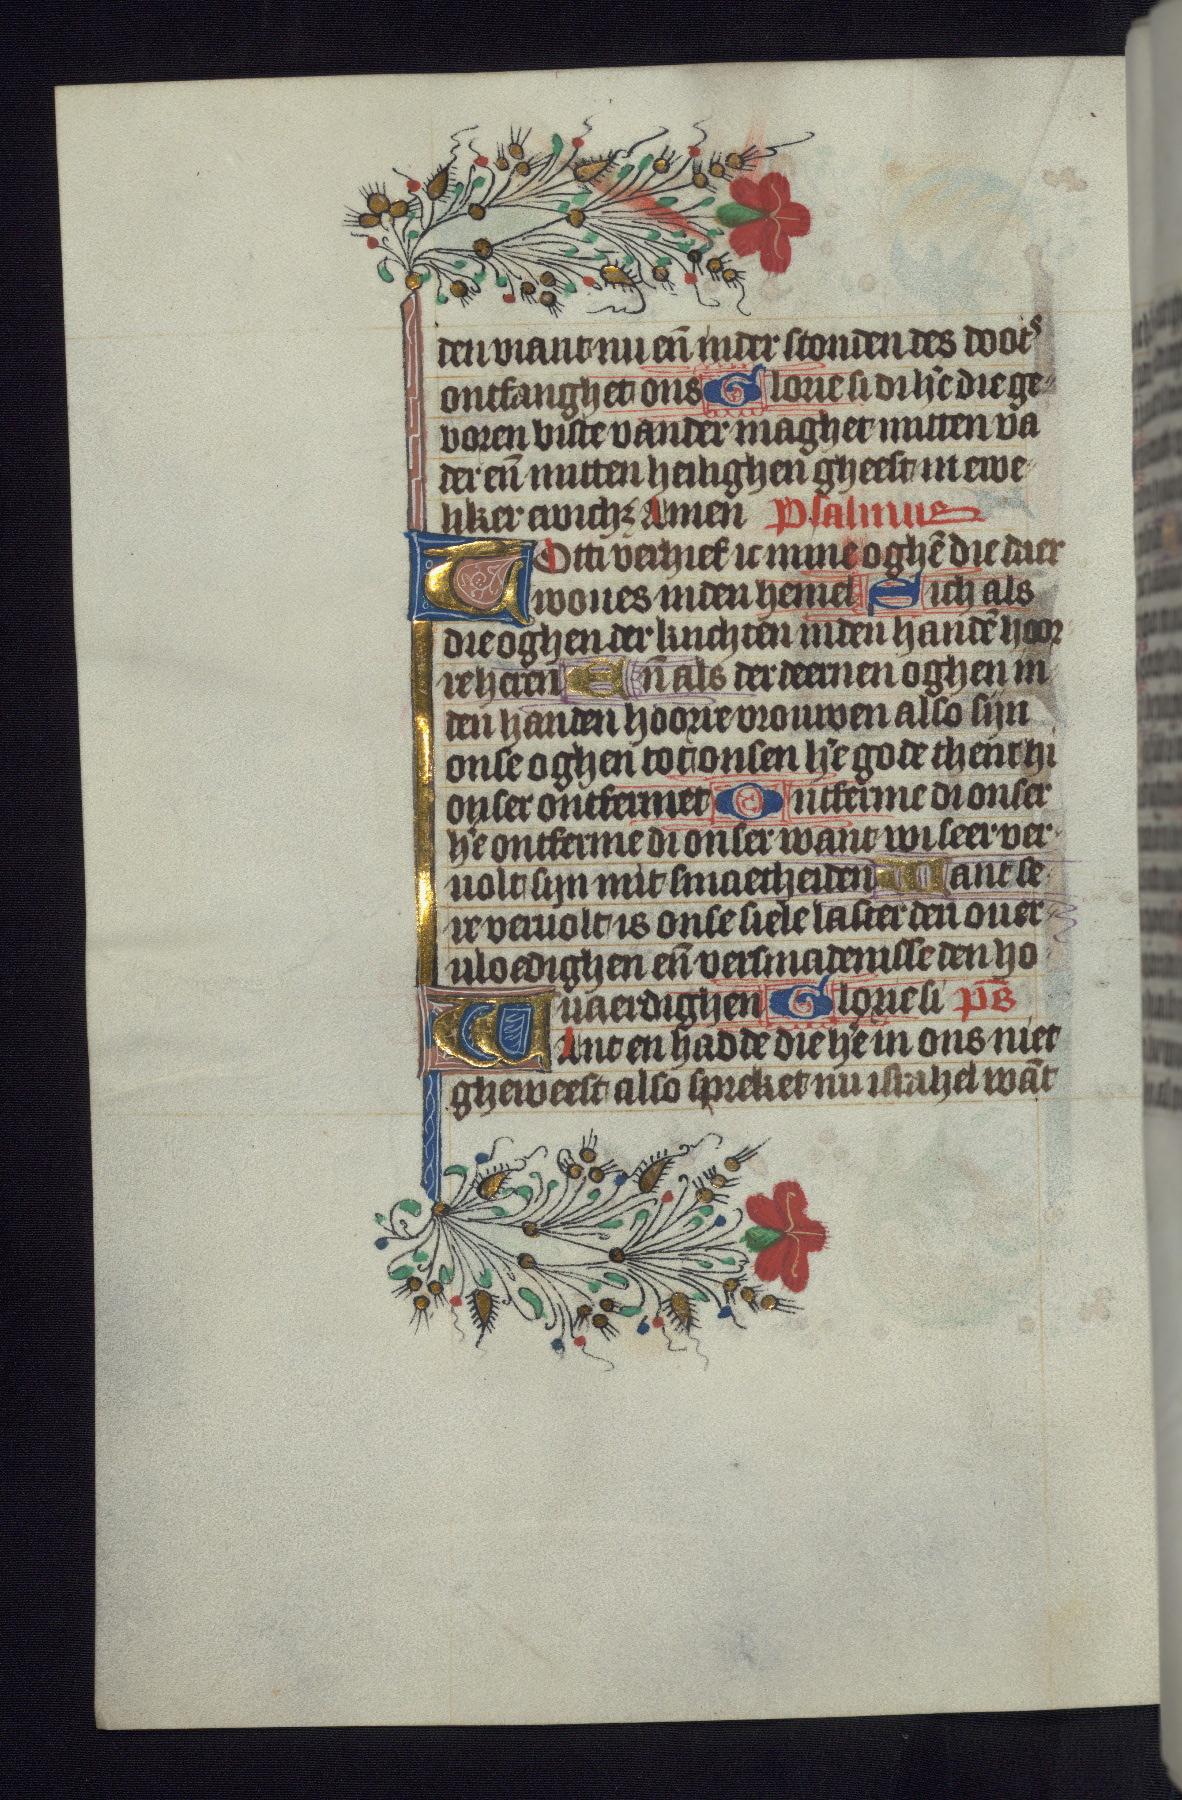 den viant nu en̄ inder stonden des dootˢ
ontfanghet ons Glorie si di hr̄e die ge-
boren biste vander maghet mitten va
der en̄ mitten heilighen gheest in ewe-
liker ewichꝫ Amen Psalmus
TOtti verhief ic mine oghē die daer
woues inden hemel Sich als
die oghen der knechten inden handē hoor-
re heren En̄ als der deernen oghen in
den handen hoorre vrouwen also sijn
onse oghen tot onsen hr̄e gode thent hi
onser ontfermet Ontferme di onser
hr̄e ontferme di onser want wi seer ver-
uolt sijn mit smaetheiden Want se-
re veruolt is onse siele laster den ouer-
uloedighen en̄ versmadenisse den ho-
uaerdighen Glorie si ps̄
WAnt en hadde die hr̄e in ons niet
gheweest also spreket nu israhel wāt